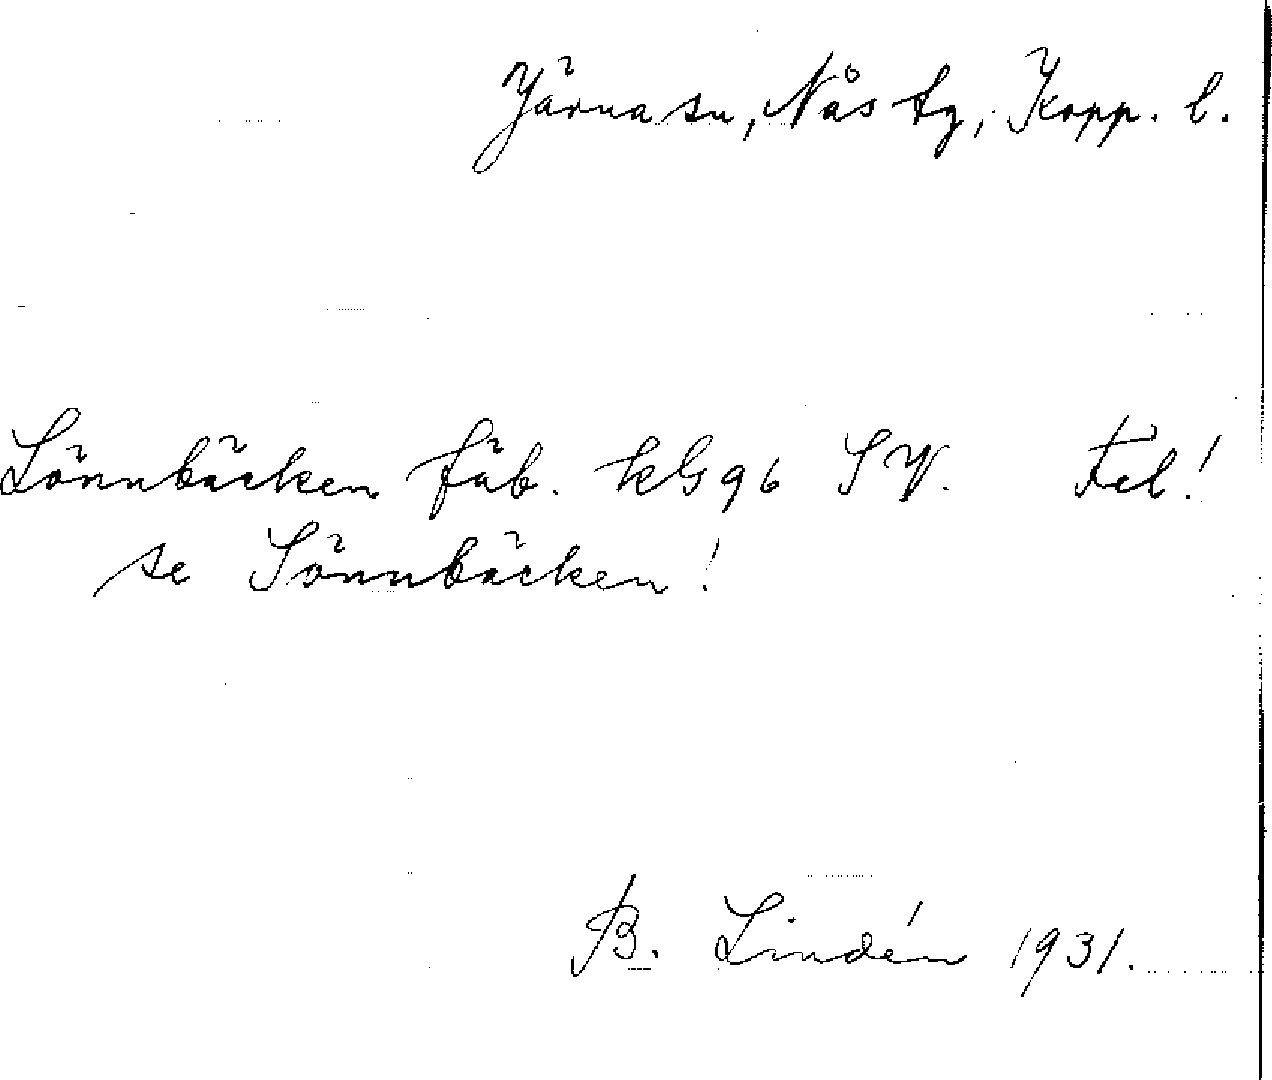 Järna sn, Nås tg, Kopp. l.
Lönnbäcken fäb. kG96 SV. Fel!
se Sönnbäcken!
B. Lindén 1931.